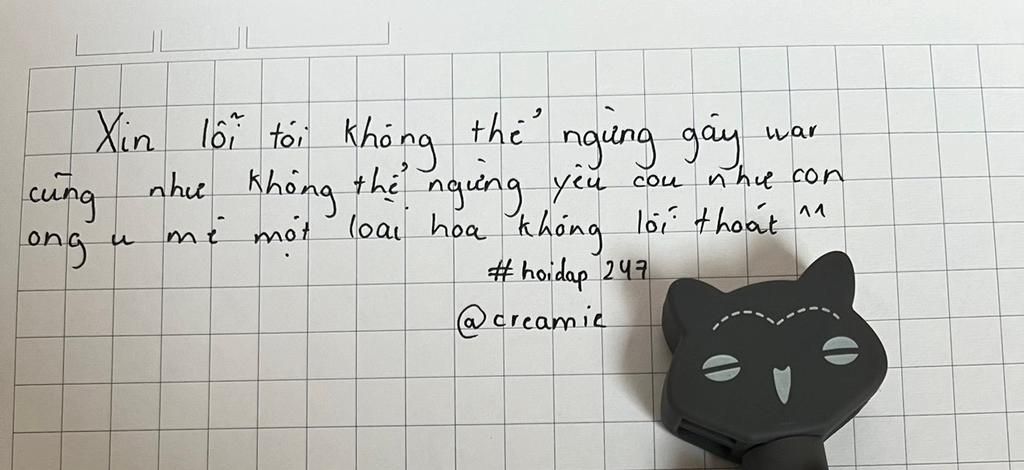 Xin lỗi tôi không thể ngừng gây war
cũng như không thể ngừng yêu cou như con
ong u mê một loài hoa không lối thoát ^^
#hoidap 247
@creamie